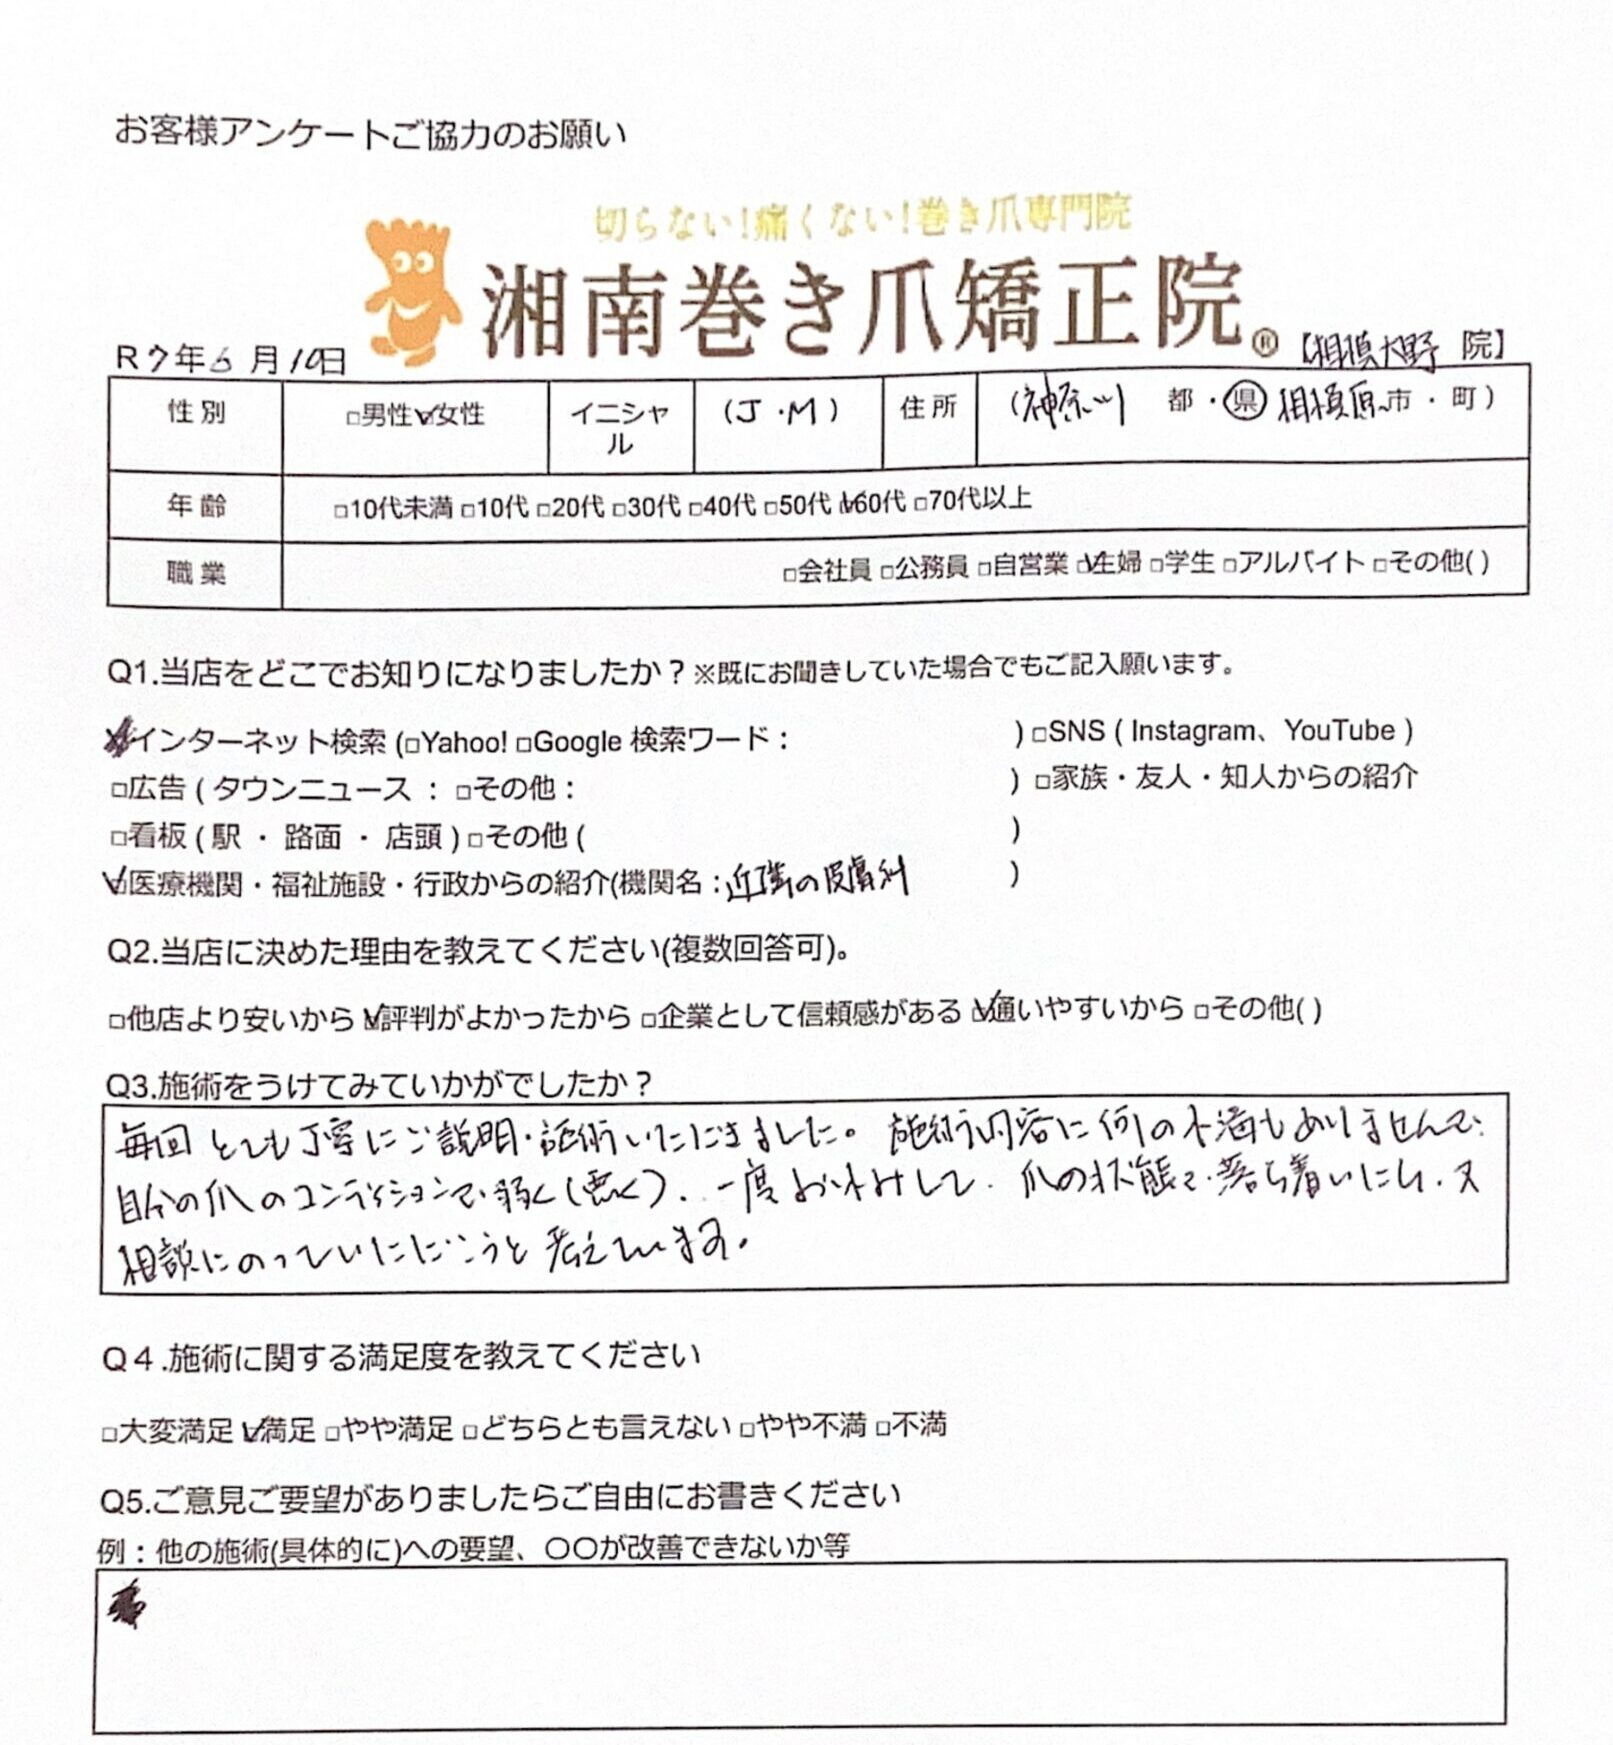 お客様アンケートご協力のお願い
切らない!痛くない!巻き爪専門院
湘南巻き爪矯正院®【相模大野 院】
R7年6月10日
性別 □男性☑女性 イニシャル (J・M) 住所 (神奈川 都・県 相模原 市・町)
年齢 □10代未満 □10代 □20代 □30代 □40代 □50代 ☑60代 □70代以上
職業 □会社員 □公務員 □自営業 ☑主婦 □学生 □アルバイト □その他( )
Q1.当店をどこでお知りになりましたか?※既にお聞きしていた場合でもご記入願います。
インターネット検索 (□Yahoo! □Google 検索ワード: ) □SNS ( Instagram、YouTube )
□広告 ( タウンニュース : □その他: ) □家族・友人・知人からの紹介
□看板 ( 駅 ・ 路面 ・ 店頭 ) □その他 ( )
☑医療機関・福祉施設・行政からの紹介(機関名:近隣の皮膚科 )
Q2.当店に決めた理由を教えてください(複数回答可)。
□他店より安いから ☑評判がよかったから □企業として信頼感がある ☑通いやすいから □その他( )
Q3.施術をうけてみていかがでしたか?
毎回 とても丁寧にご説明・施術いただきました。施術内容に何の不満もありませんで、
自分の爪のコンディションで弱く(悪く)、一度おやすみして、爪の状態で落ち着いたら、又
相談にのっていただこうと考えています。
Q4.施術に関する満足度を教えてください
□大変満足 ☑満足 □やや満足 □どちらとも言えない □やや不満 □不満
Q5.ご意見ご要望がありましたらご自由にお書きください
例:他の施術(具体的に)への要望、〇〇が改善できないか等